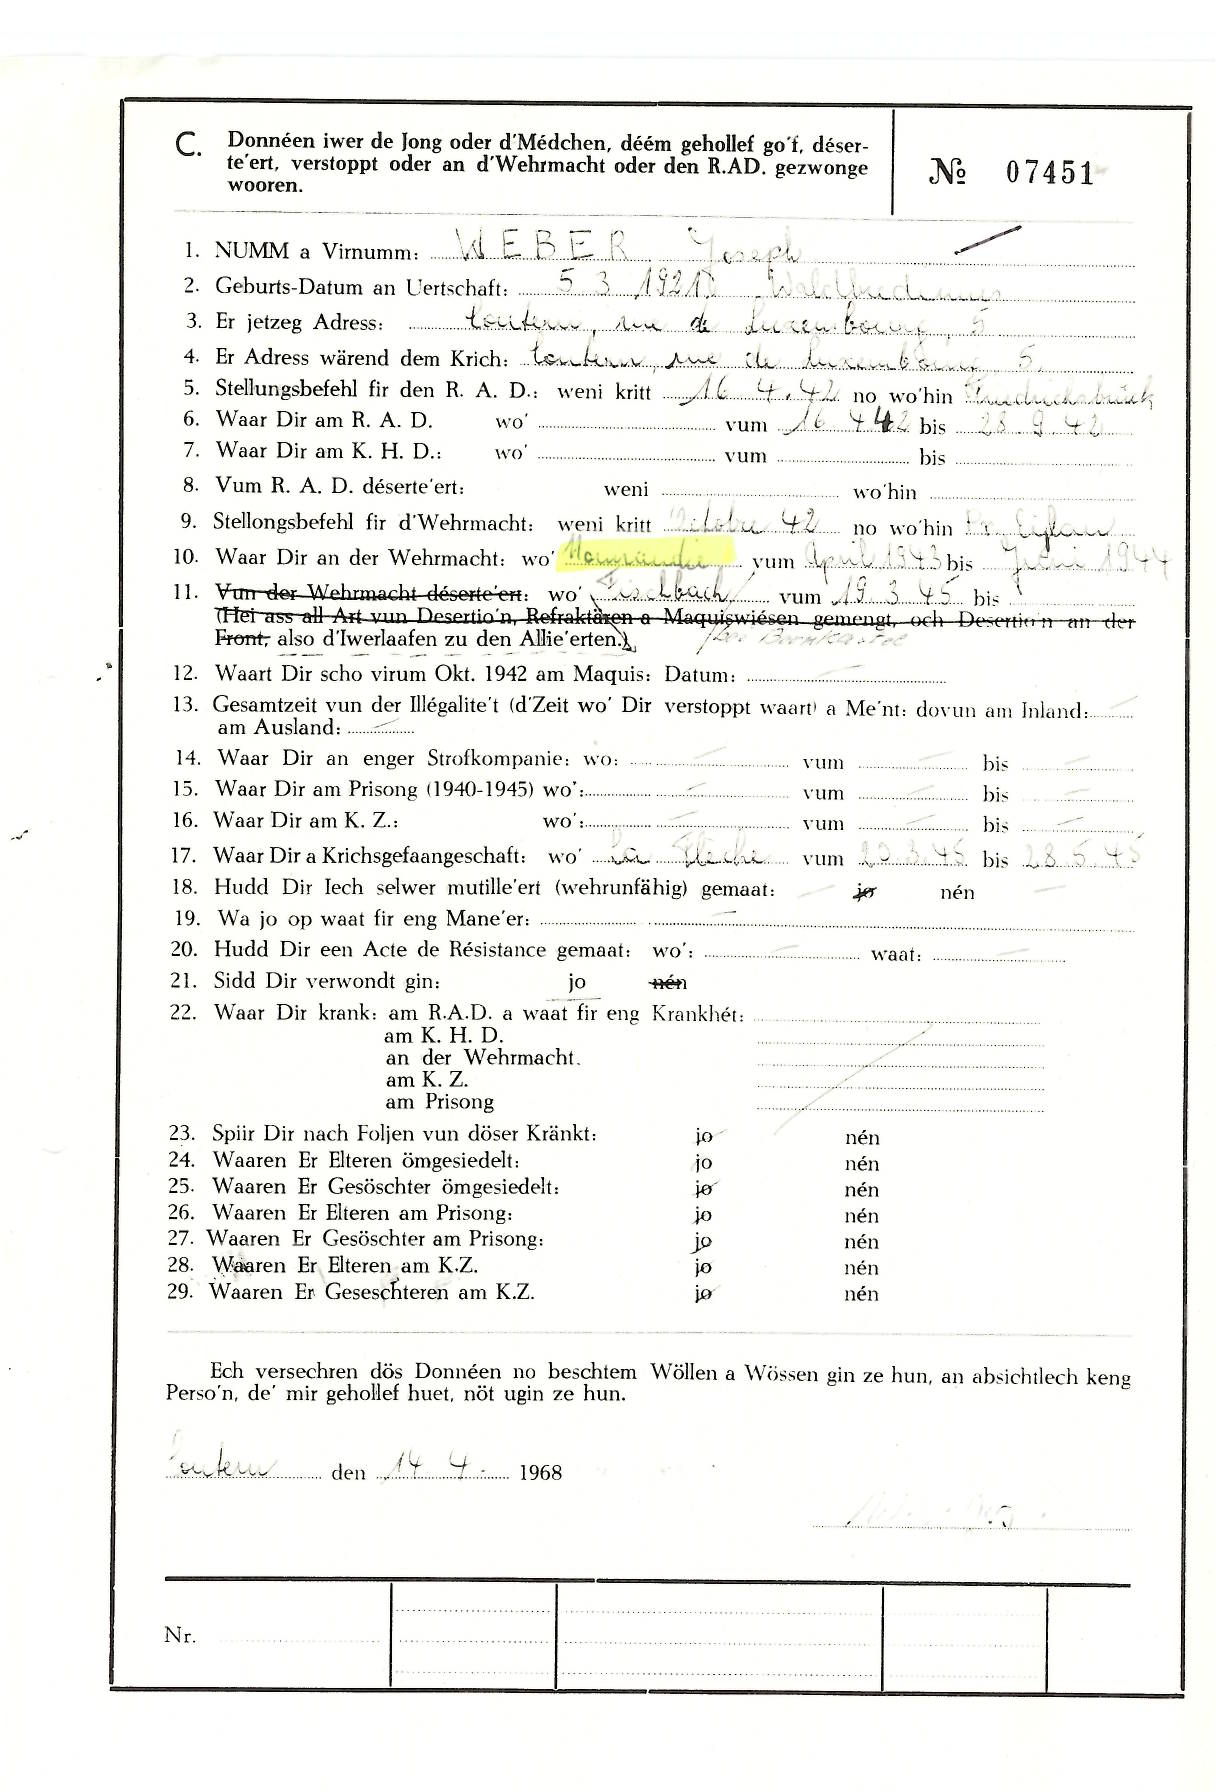 C. Donnéen iwer de Jong oder d'Médchen, déém gehollef go'f, déser-
te'ert, verstoppt oder an d'Wehrmacht oder den R.AD. gezwonge
wooren.
№ 07451
1. NUMM a Virnumm: WEBER Joseph
2. Geburts-Datum an Uertschaft: 5 3 1921
3. Er jetzeg Adress: Contern, rue de Luxembourg, 5
4. Er Adress wärend dem Krich: Contern, rue de Luxembourg 5.
5. Stellungsbefehl fir den R. A. D.: weni kritt 16 4. 42 no wo'hin Friedrichsbrück
6. Waar Dir am R. A. D. wo' vum 16 4 42 bis 28 9 42
7. Waar Dir am K. H. D.: wo' vum bis
8. Vum R. A. D. déserte'ert: weni wo'hin
9. Stellongsbefehl fir d'Wehrmacht: weni kritt Octobre 42 no wo'hin Pr. Eylau
10. Waar Dir an der Wehrmacht: wo' Normandie vum April 1943 bis Juni 1944
11. Vun der Wehrmacht déserte'ert: wo' Fischbach vum 19.3.45 bis
(Hei ass all Art vun Desertio'n, Refraktären a Maquiswiésen gemengt, och Desertio'n an der
Front, also d'Iwerlaafen zu den Allie'erten.)
12. Waart Dir scho virum Okt. 1942 am Maquis: Datum:
13. Gesamtzeit vun der Illégalite't (d'Zeit wo' Dir verstoppt waart) a Me'nt: dovun am Inland:
am Ausland:
14. Waar Dir an enger Strofkompanie: wo: vum bis
15. Waar Dir am Prisong (1940-1945) wo': vum bis
16. Waar Dir am K. Z.: wo': vum bis
17. Waar Dir a Krichsgefaangeschaft: wo' La Fleche vum 20.3.45 bis 28.5.45
18. Hudd Dir Iech selwer mutille'ert (wehrunfähig) gemaat: jo nén
19. Wa jo op waat fir eng Mane'er:
20. Hudd Dir een Acte de Résistance gemaat: wo': waat:
21. Sidd Dir verwondt gin: jo nén
22. Waar Dir krank: am R.A.D. a waat fir eng Krankhét:
am K. H. D.
an der Wehrmacht.
am K. Z.
am Prisong
23. Spiir Dir nach Foljen vun döser Kränkt: jo nén
24. Waaren Er Elteren ömgesiedelt: jo nén
25. Waaren Er Gesöschter ömgesiedelt: jo nén
26. Waaren Er Elteren am Prisong: jo nén
27. Waaren Er Gesöschter am Prisong: jo nén
28. Waaren Er Elteren am K.Z. jo nén
29. Waaren Er Geseschteren am K.Z. jo nén
Ech versechren dös Donnéen no beschtem Wöllen a Wössen gin ze hun, an absichtlech keng
Perso'n, de' mir gehollef huet, nöt ugin ze hun.
Contern den 14 4. 1968
Nr.